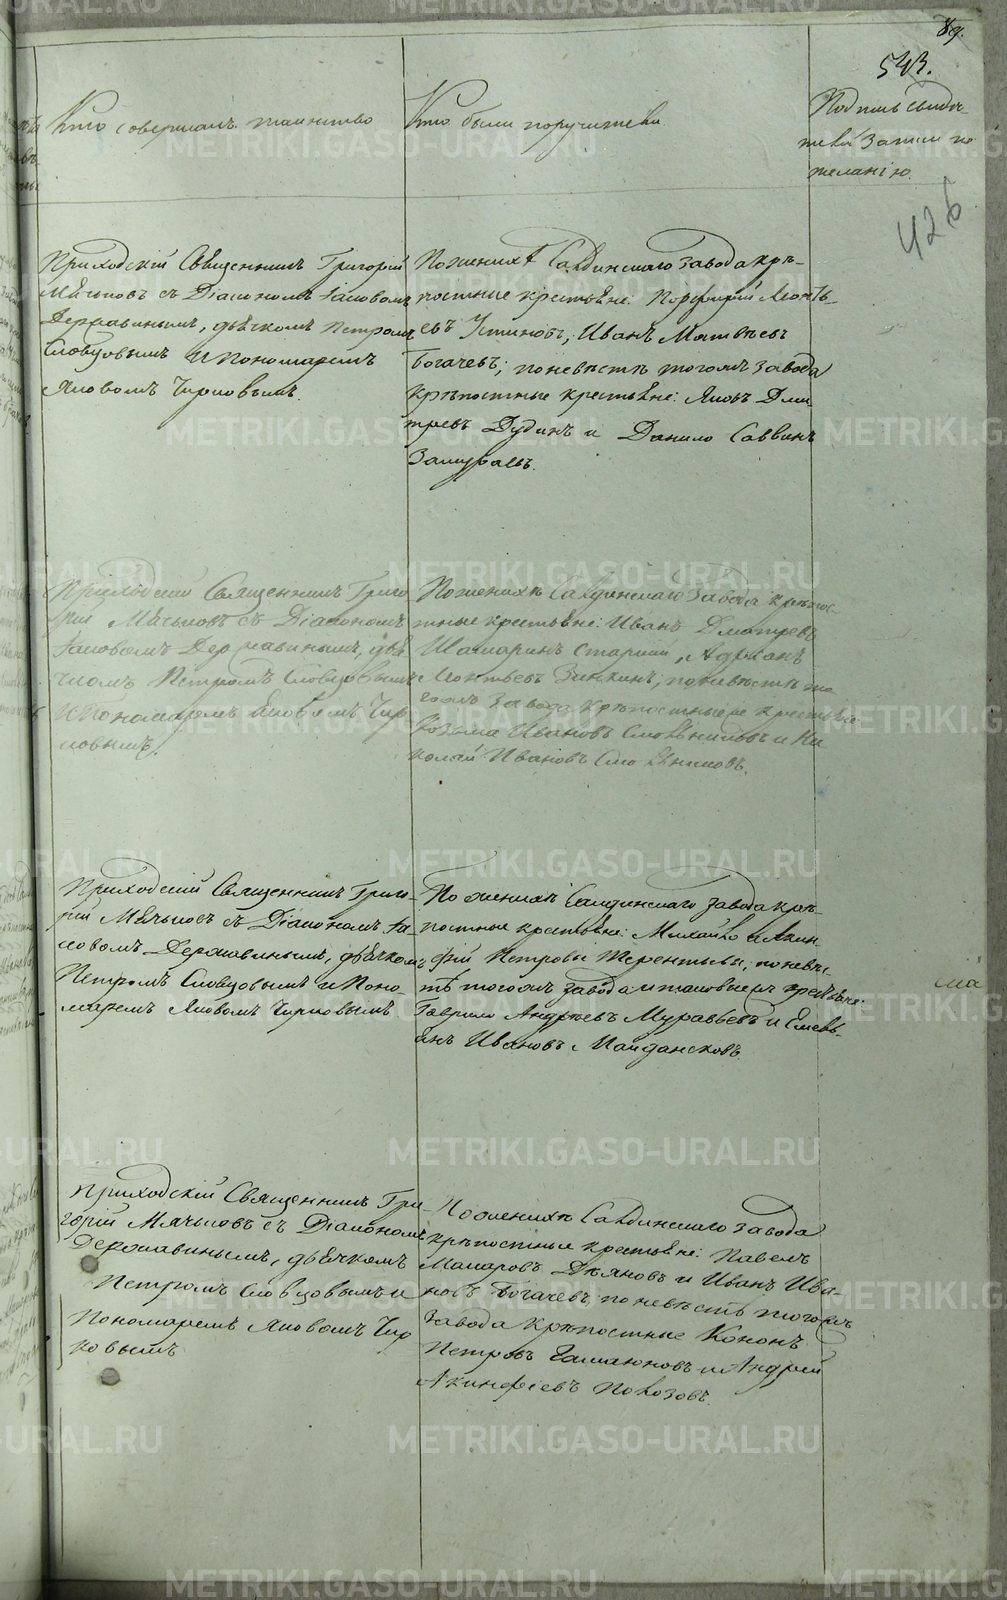 89.
543.
426
Кто совершалъ таинство
Кто были поручители
Подпись свидѣ-
телей записи по
желанію.
Приходскій Священникъ Григорій
Мячковъ съ Діакономъ Іаковомъ
Державинымъ, дьячкомъ Петромъ
Словцовымъ и пономаремъ
Яковомъ Чирковымъ.
По женихѣ Салдинскаго завода крѣ-
постные крестьяне: Порфирій Леонть-
евъ Устиновъ, Иванъ Матвѣевъ
Богачевъ; по невѣстѣ тогожъ завода
крѣпостные крестьяне: Яковъ Дми-
тревъ Дудинъ и Данило Саввинъ
Замураевъ.
Приходскій Священникъ Григо
рій Мячковъ съ Діакономъ
Іаковомъ Державинымъ, дья
чкомъ Петромъ Словцовымъ
и Пономаремъ Яковомъ Чир
ковымъ.
По женихѣ Салдинскаго завода крѣпос-
тные крестьяне: Иванъ Дмитревъ
Шамаринъ старшій, Адріанъ
Леонтьевъ Зинкинъ; по невѣстѣ то
гожъ завода крѣпостные крестьяне
Козьма Ивановъ и Ни
колай Ивановъ
Приходскій Священникъ Григо-
рій Мячковъ съ Діакономъ Іа-
ковомъ Державинымъ, дьячкомъ
Петромъ Словцовымъ и Поно
маремъ Яковомъ Чирковымъ
По женихѣ Салдинскаго завода крѣ-
постные крестьяне: Михайло и Акин
фій Петровы Терентьевы; по невѣс-
тѣ тогожъ завода и таковыежъ крестьяне
Гаврило Андрѣевъ Муравьевъ и Емель-
янъ Ивановъ Пайдансковъ.
Приходскій Священникъ Гри-
горій Мячковъ съ Діакономъ
Державинымъ, дьячкомъ
Петромъ Словцовымъ и
Пономаремъ Яковомъ Чир
ковымъ
По женихѣ Салдинскаго завода
крѣпостные крестьяне: Павелъ
Макаровъ Деяновъ и Иванъ Ива-
новъ Богачевъ; по невѣстѣ тогожъ
завода крѣпостные Кононъ
Петровъ Гамаюновъ и Андрей
Акинфіевъ Повозовъ.
METRIKI.GASO-URAL.RU